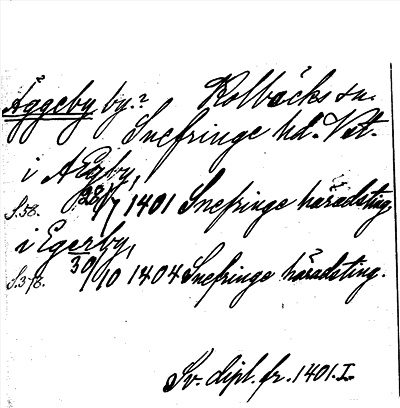 Äggeby by.? Kolbäcks sn.
Snefringe hd. Vstl.
i AEgby,
S.58. 28/7 1401 Snefringe häradsting
i Egerby,
S.378. 30/10 1404 Snefringe häradsting.
Sv. dipl. fr. 1401. I.